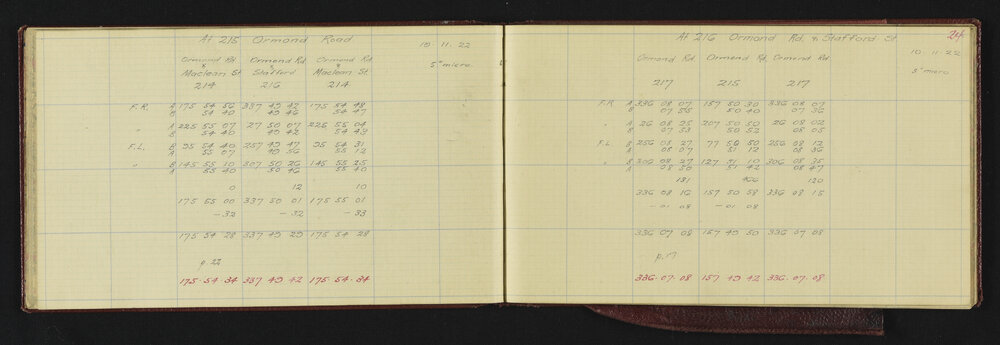 At 215 Ormond Road
10. 11. 22
Ormond Rd. Ormond Rd Ormond Rd.
& & &
Maclean St Stafford Maclean St.
5" micro
214 216 214
F.R. A 175 54 56 337 49 42 175 54 48
B 54 40 49 46 54 47
" A 225 55 07 27 50 07 225 55 04
B 54 40 49 42 54 49
F.L. B 95 54 40 257 49 47 95 54 31
A 55 07 49 56 55 12
" B 145 55 30 307 50 26 145 55 25
A 55 40 50 46 55 40
0 12 10
175 55 00 337 50 01 175 55 01
- 32 - 32 - 33
175 54 28 337 49 29 175 54 28
p 22
175 · 54 · 34 337 49 42 175 · 54 · 34
24
At 216 Ormond Rd. & Stafford St.
10. 11. 22
Ormond Rd. Ormond Rd. Ormond Rd.
5" micro
217 215 217
F.R. A 336 08 07 157 50 30 336 08 07
B 07 50 40 07 36
" A 26 08 25 207 50 50 26 08 02
B 07 53 50 52 08 05
F.L. B 256 08 27 77 50 50 256 08 12
A 08 07 51 12 08 36
" B 306 08 27 127 31 10 306 08 35
A 08 30 51 42 08 47
131 466 120
336 08 16 157 50 58 336 08 15
- 01 08 - 01 08
336 07 08 157 49 50 336 07 08
p. 17
336 · 07 · 08 157 49 42 336 · 07 · 08